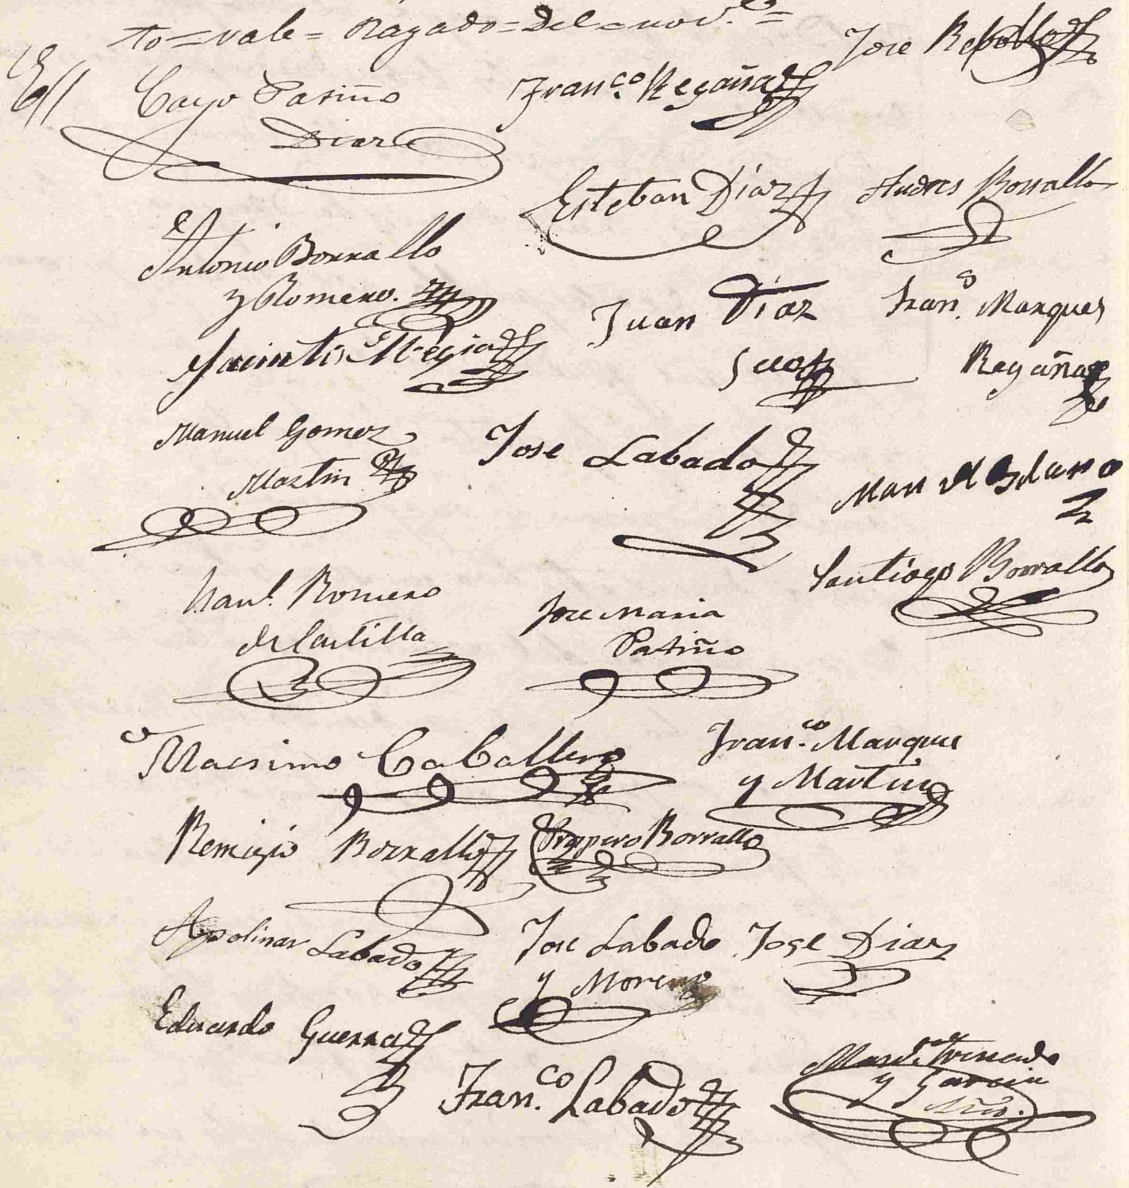 to = vale = Rayado = Del = nov.e =
Cayo Patiño
Diaz
Fran.co Regaña
Jose Rebollo
Esteban Diaz
Andres Borrallo
Antonio Borrallo
y Romero.
Juan Diaz
Fran.o Marques
Regaña
Jacinto Megia
Manuel Gomez
Martin
Jose Labado
Santiago Borrallo
Man.l Romero
de Castilla
Jose Maria
Patiño
Macsimo Caballero
Fran.co Marques
y Martin
Remigio Borrallo
Prospero Borrallo
Apolinar Labado
Jose Labado
y Moreno
Jose Diaz
Eduardo Guerra
Fran.co Labado
y Garcia